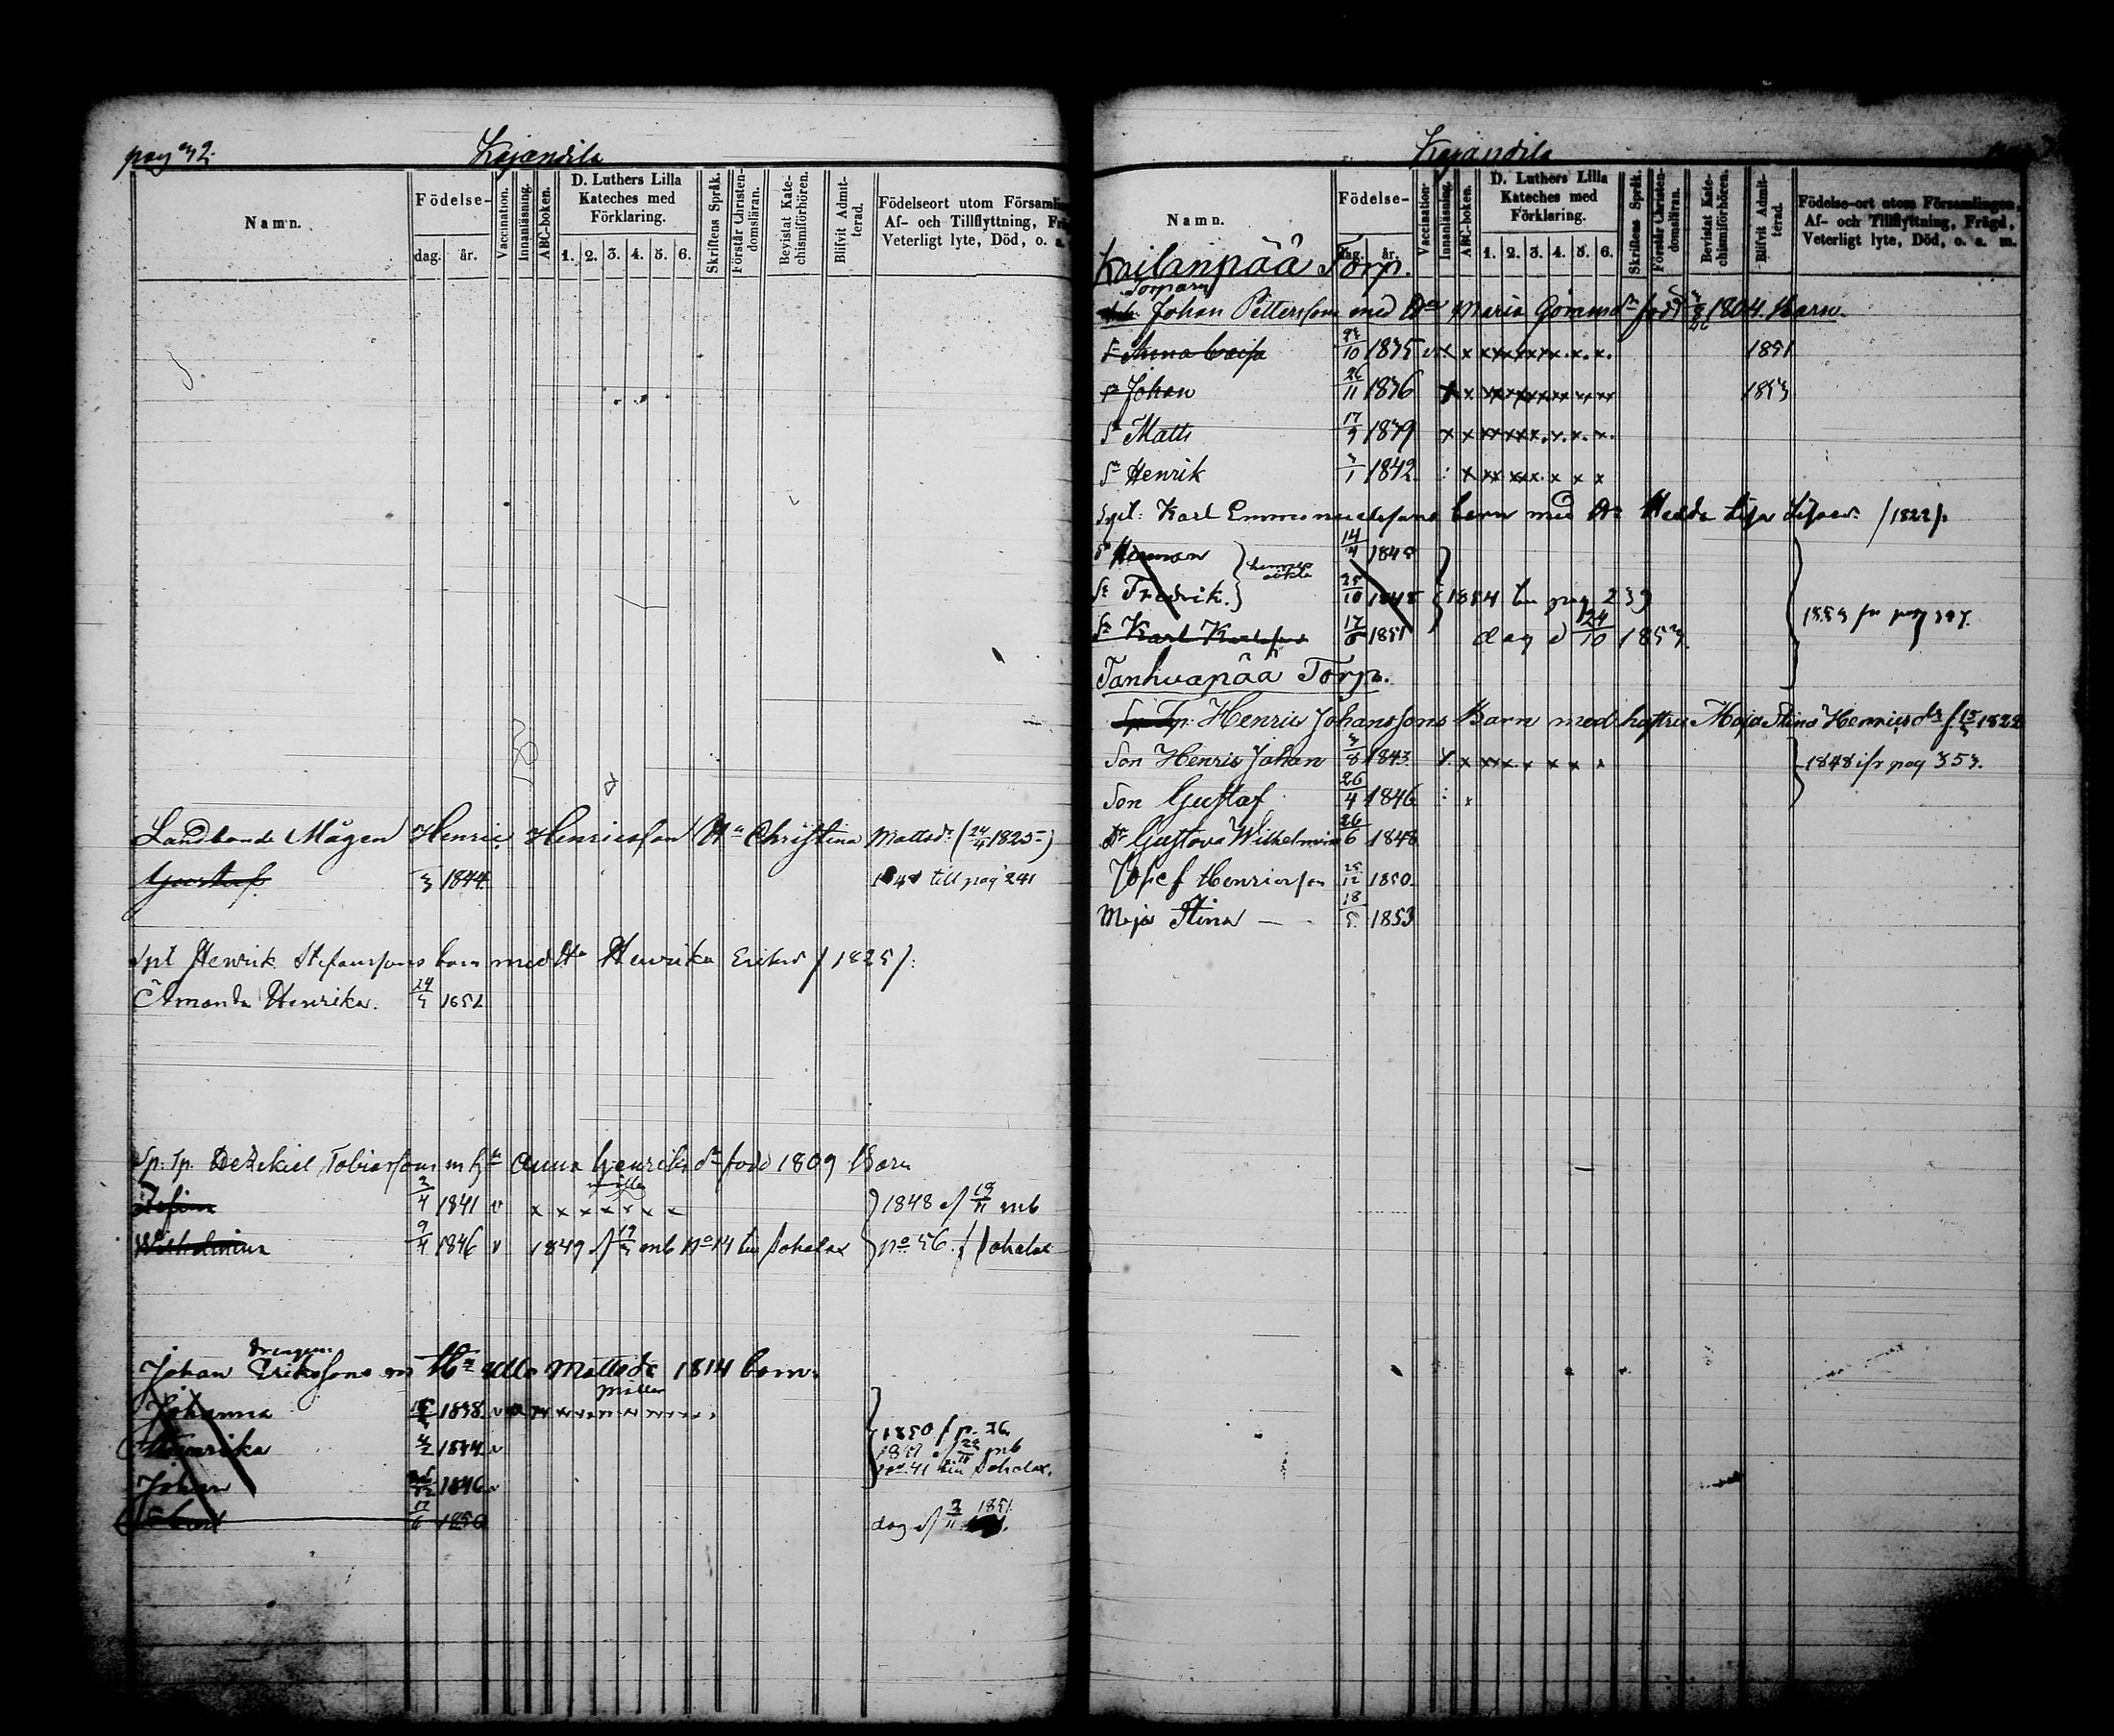 pag 32.
Kajandila
Namn.
Födelse-
dag.
år.
Vaccination.
Innanläsning.
ABC-boken.
D. Luthers Lilla
Kateches med
Förklaring.
1. 2. 3. 4. 5. 6.
Skriftens Språk.
Förstår Christen-
domsläran.
Bevistat Kate-
chismiförhören.
Blifvit Admit-
terad.
Födelseort utom Församlin
Af- och Tillflyttning, Frä
Veterligt lyte, Död, o. a.
Landbonde Mågen Henric Henricsson Hu Christina Mattsdr (24/4 1825)
Gustaf 3 1844 till pag 241
Spt Henrik Stefanssons barn med Hu Henrika Eriksd /1825/:
Amanda Henrika. 24 1852
Sp. Tp. Hezekiel Tobiassons m hu Anna Henriksdr född 1809 Barn
3/4 1841 v x x x x x x 1848 mb
Wilhelmina 9/4 1846 v 1849 mb No 14 till Sohalax No 56
drengen
Johan Erikssons m Hu Ulla Mattsdr 1814 barn.
Johanna 1838
1850 f p. 26
Henrika 4/2 1844 v mb
Johan 1846 v No 41
1850 dog 1851
Kajandila
Namn.
Födelse-
dag.
år.
Vaccination.
Innanläsning.
ABC-boken.
D. Luthers Lilla
Kateches med
Förklaring.
1. 2. 3. 4. 5. 6.
Skriftens Språk.
Förstår Christen-
domsläran.
Bevistat Kate-
chismiförhören.
Blifvit Admit-
terad.
Födelse-ort utom Församlingen,
Af- och Tillflyttning, Frägd,
Veterligt lyte, Död, o. a. m.
Kailanpää Torp.
Torparn
Johan Pettersson med Hu Maria Göransdr född 1804. Barn.
Dr Anna Caisa 10 1835 1851
Sn Johan 26/11 1836 1853
Sn Matts 17/9 1839
Sn Henrik 3/1 1842
Spt: Karl Emmanuelssons barn med Hu Hedda Lisa /1822/.
Sn Herman 14/4 1845
Sn Fredrik. 25/10 1848 1854 till pag 239
Sn Karl 17/6 1851 dog d 24/10 1853.
1853 fr pag 397.
Tanhuapää Torp.
Sp. Tp. Henric Johanssons Barn med hustru Maja Stina Henricsdr f. 15 1822
Son Henric Johan 3/8 1843. 1848 ifr pag 353.
Son Gustaf 26/4 1846
Dr Gustava Wilhelmina 26/6 1848
Josef Henricsson 25/12 1850
Maja Stina — 18/5 1853